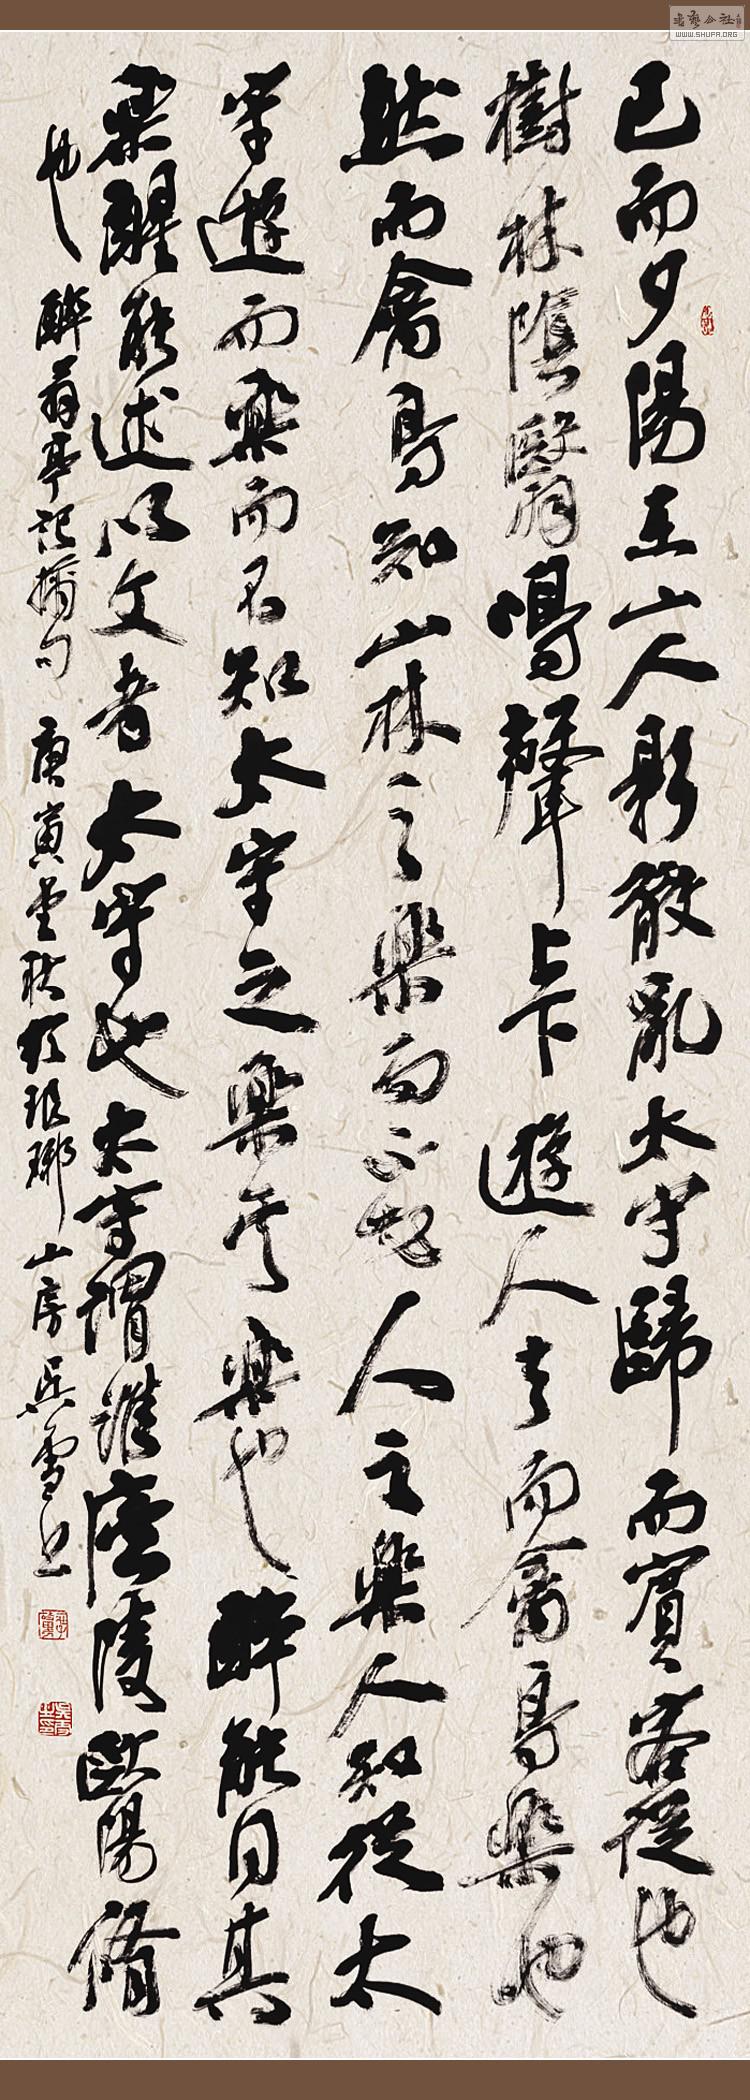 已而夕陽在山人影散亂太守歸而賓客從也
樹林陰翳鳴聲上下遊人去而禽鳥樂也
然而禽鳥知山林之樂而不知人之樂人知從太
守遊而樂而不知太守之樂其樂也醉能同其
樂醒能述以文者太守也太守謂誰廬陵歐陽脩
也 醉翁亭記摘句 庚寅秋於琅琊山房 吳雪書
WWW.SHUFA.ORG